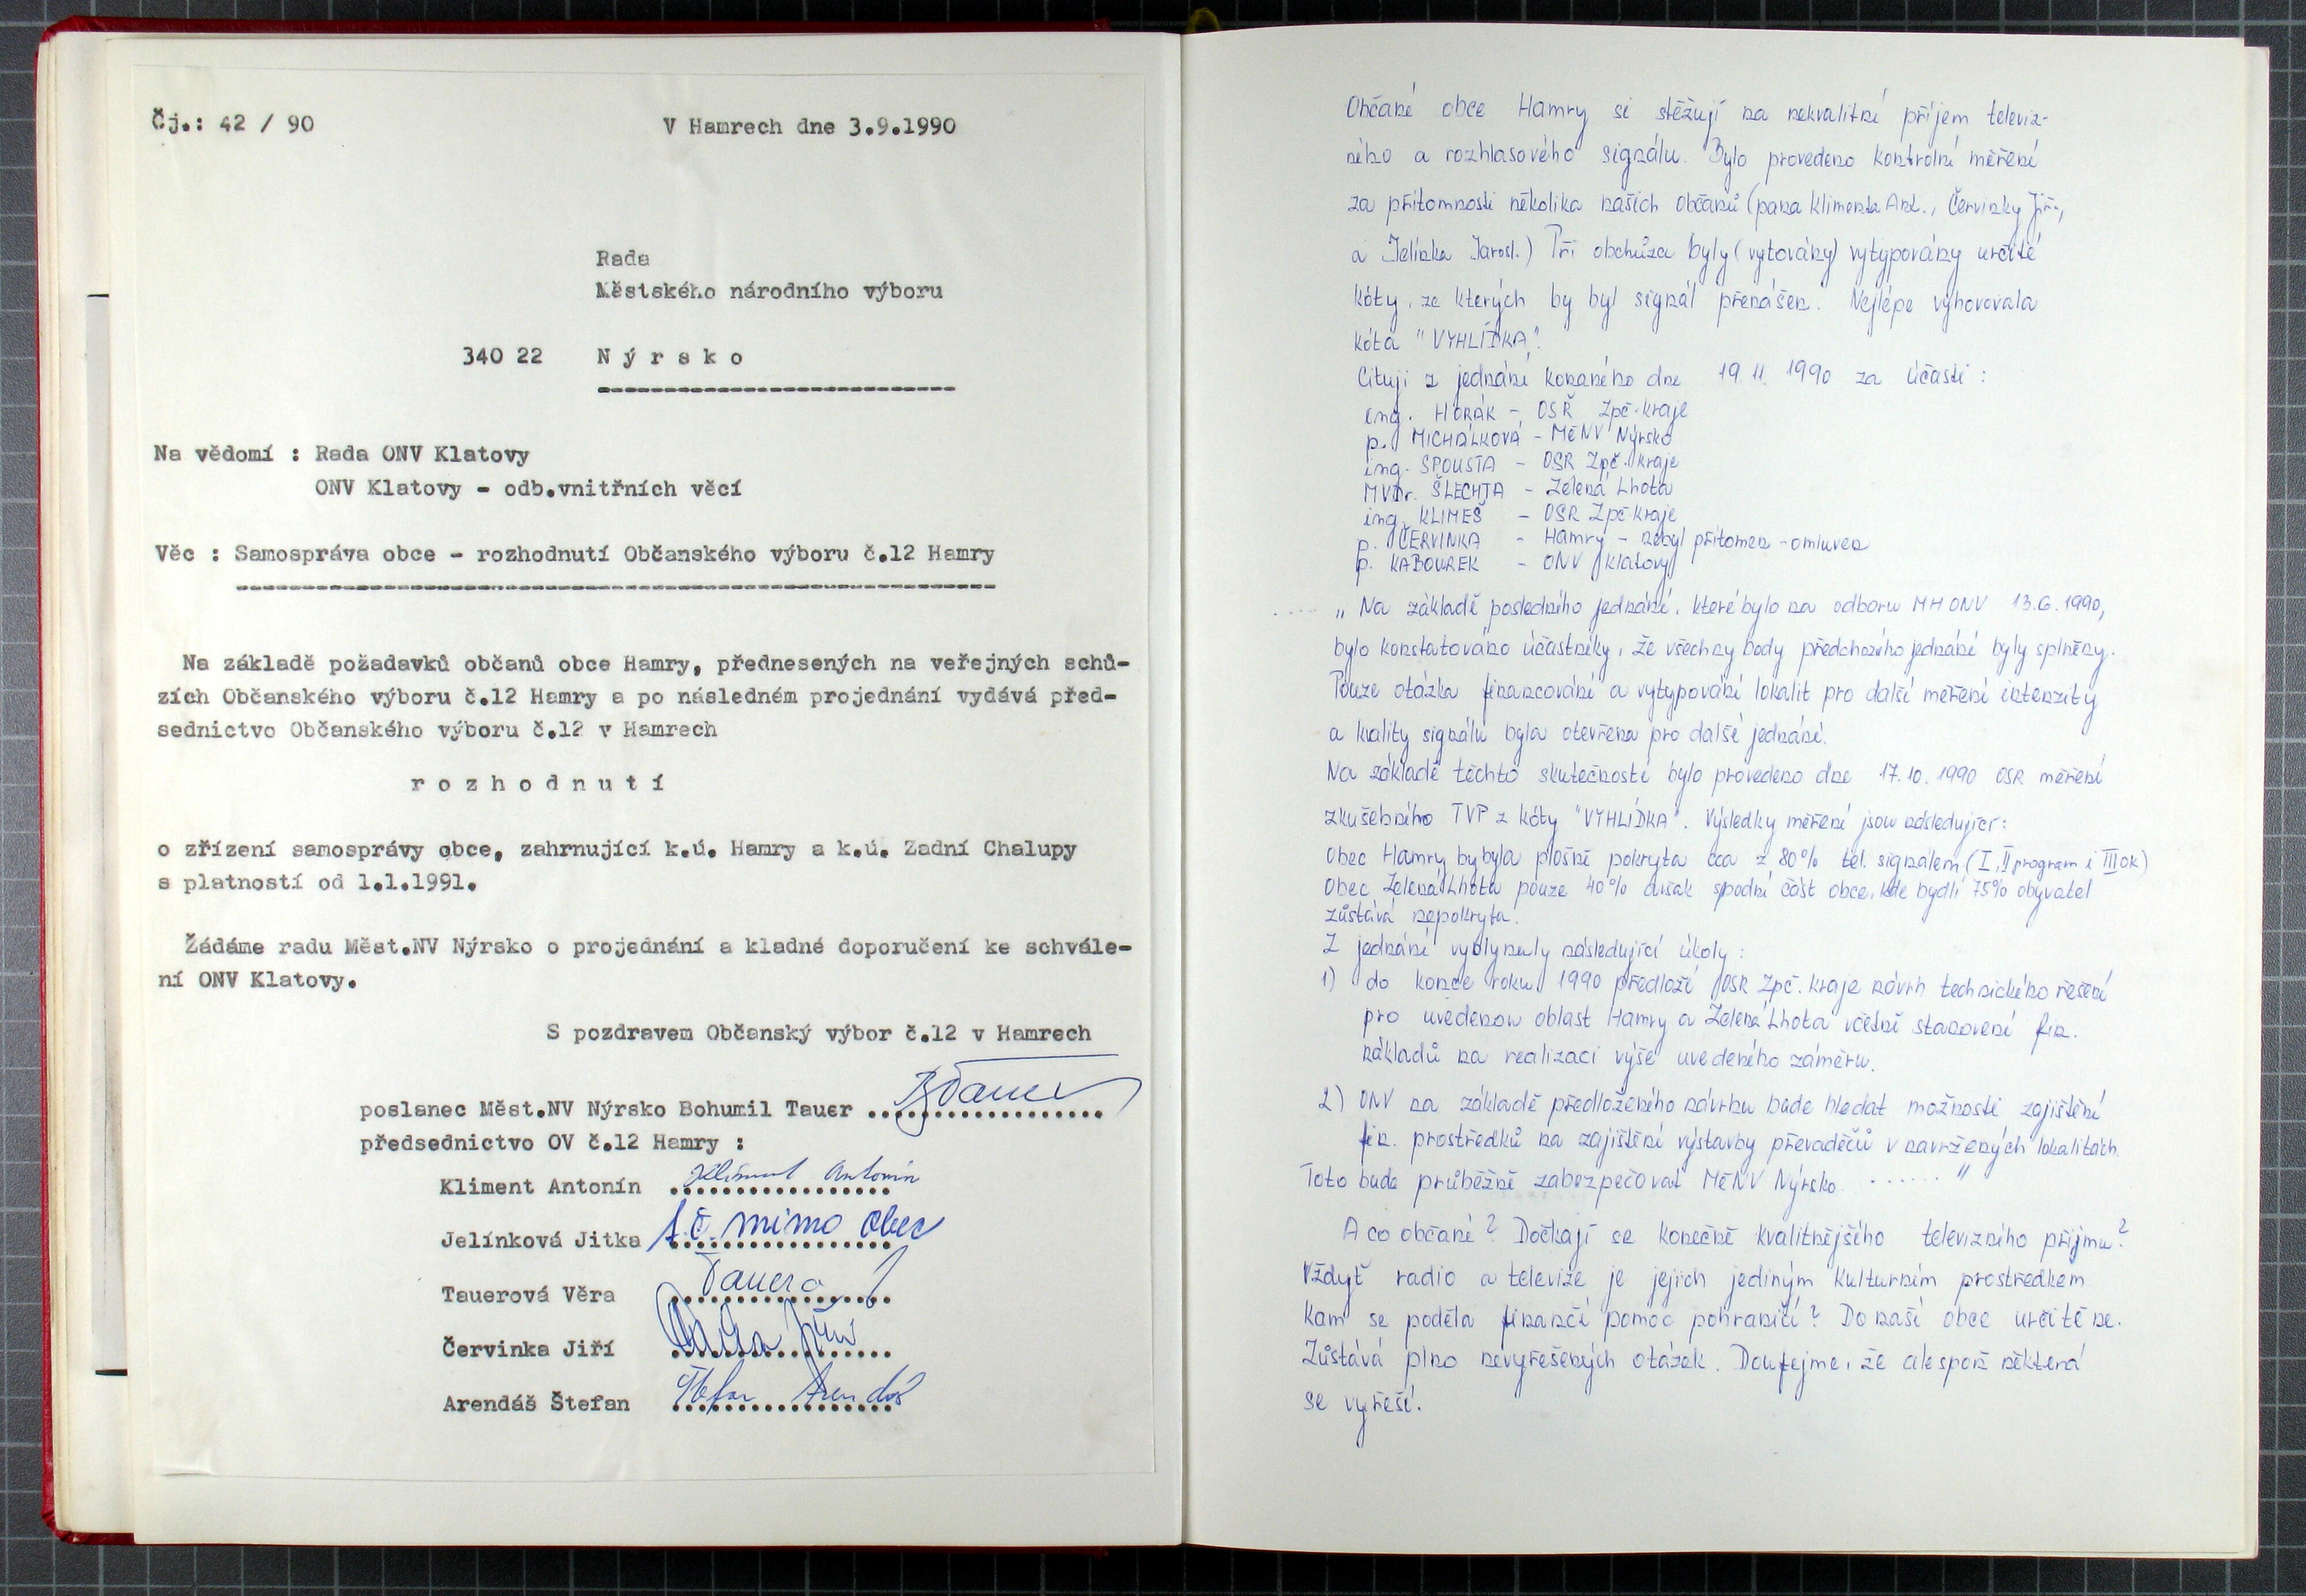 Čj.: 42 / 90
V Hamrech dne 3.9.1990
Rada
Městského národního výboru
340 22 N ý r s k o
Na vědomí : Rada ONV Klatovy
ONV Klatovy - odb.vnitřních věcí
Věc : Samospráva obce - rozhodnutí Občanského výboru č.12 Hamry
Na základě požadavků občanů obce Hamry, přednesených na veřejných schů-
zích Občanského výboru č.12 Hamry a po následném projednání vydává před-
sednictvo Občanského výboru č.12 v Hamrech
r o z h o d n u t í
o zřízení samosprávy obce, zahrnující k.ú. Hamry a k.ú. Zadní Chalupy
s platností od 1.1.1991.
Žádáme radu Měst.NV Nýrsko o projednání a kladné doporučení ke schvále-
ní ONV Klatovy.
S pozdravem Občanský výbor č.12 v Hamrech
poslanec Měst.NV Nýrsko Bohumil Tauer .................. BTauer
předsednictvo OV č.12 Hamry :
Kliment Antonín ................. Kliment Antonín
Jelínková Jitka ................. t.č. mimo obec
Tauerová Věra ................. Tauero
Červinka Jiří .................
Arendáš Štefan ................. Štefan Arendáš
Občané obce Hamry si stěžují na nekvalitní příjem televiz-
ního a rozhlasového signálu. Bylo provedeno kontrolní měření
za přítomnosti několika našich občanů (pana Klimenta Ant., Červinky Jiř.,
a Jelínka Jarosl.) Při obchůzce byly (vytovány) vytypovány určité
kóty, ze kterých by byl signál přenášen. Nejlépe vyhovovala
kóta "VYHLÍDKA".
Cituji z jednání konaného dne 19.11. 1990 za účasti :
ing. HORÁK - OSŘ Zpč. kraje
p. MICHÁLKOVÁ - MěNV Nýrsko
ing. SPOUSTA - OSR Zpč. kraje
MVDr. ŠLECHTA - Zelená Lhota
ing. KLIMEŠ - OSR Zpč. kraje
p. ČERVINKA - Hamry - nebyl přítomen - omluven
p. KABOUREK - ONV Klatovy
.... „ Na základě posledního jednání, které bylo na odboru MH ONV 13.6.1990,
bylo konstatováno účastníky, že všechny body předchozího jednání byly splněny.
Pouze otázka financování a vytypování lokalit pro další měření intenzity
a kvality signálu byla otevřena pro další jednání.
Na základě těchto skutečností bylo provedeno dne 17.10. 1990 OSR měření
zkušebního TVP z kóty "VYHLÍDKA". Výsledky měření jsou následující:
Obec Hamry by byla plošně pokryta cca z 80% tel. signálem (I, II program i III OK)
Obec Zelená Lhota pouze 40% avšak spodní část obce, kde bydlí 75% obyvatel
zůstává nepokryta.
Z jednání vyplynuly následující úkoly :
1) do konce roku 1990 předloží OSR Zpč. kraje návrh technického řešení
pro uvedenou oblast Hamry a Zelená Lhota včetně stanovení fin.
nákladů na realizaci výše uvedeného záměru.
2) ONV na základě předloženého návrhu bude hledat možnosti zajištění
fin. prostředků na zajištění výstavby převaděčů v navržených lokalitách.
Toto bude průběžně zabezpečovat MěNV Nýrsko ...... "
A co občané? Dočkají se konečně kvalitnějšího televizního příjmu?
Vždyť radio a televize je jejich jediným kulturním prostředkem
Kam se poděla finanční pomoc pohraničí? Do naší obce určitě ne.
Zůstává plno nevyřešených otázek. Doufejme, že alespoň některá
se vyřeší.